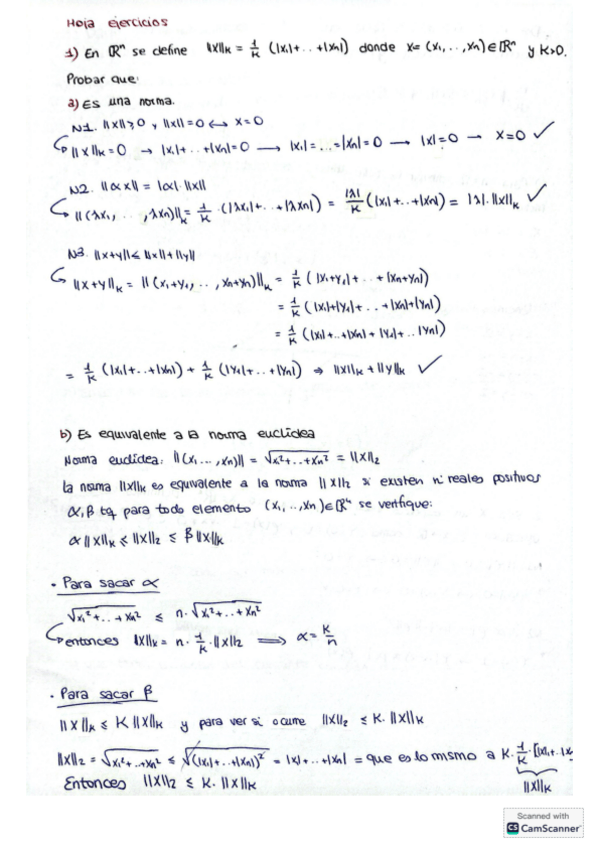 Hoja ejercicios
1) En ℝⁿ se define ||x||k = 1/K (|x₁|+..+|xn|) donde x=(x₁,..,xn)∈ℝⁿ y K>0.
Probar que:
a) Es una norma.
N1. ||x||≥0 y ||x||=0 ↔ x=0
||x||k=0 → |x₁|+..+|xn|=0 → |x₁|=...=|xn|=0 → |x|=0 → x=0 ✓
N2. ||αx||=|α|·||x||
||(λx₁,..,λxn)||k = 1/K·(|λx₁|+..+|λxn|) = |λ|/K (|x₁|+..+|xn|) = |λ|·||x||k ✓
N3. ||x+y||≤||x||+||y||
||x+y||k = ||(x₁+y₁,..,xn+yn)||k = 1/K (|x₁+y₁|+..+|xn+yn|)
= 1/K (|x₁|+|y₁|+..+|xn|+|yn|)
= 1/K (|x₁|+..+|xn|+|y₁|+..|yn|)
= 1/K (|x₁|+..+|xn|) + 1/K (|y₁|+..+|yn|) ⇒ ||x||k+||y||k ✓
b) Es equivalente a la norma euclídea
Norma euclídea: ||(x₁...,xn)|| = √x₁²+..+xn² = ||x||₂
La norma ||x||k es equivalente a la norma ||x||₂ si existen nº reales positivos
α,β tq para todo elemento (x₁,..,xn)∈ℝⁿ se verifique:
α||x||k ≤ ||x||₂ ≤ β||x||k
· Para sacar α
√x₁²+..+xn² ≤ n·√x₁²+..+xn²
entonces ||x||k = n·1/K·||x||₂ ⟹ α=K/n
· Para sacar β
||x||k ≤ K||x||k y para ver si ocurre ||x||₂ ≤ K·||x||k
||x||₂ = √x₁²+..+xn² ≤ √(|x₁|+..+|xn|)² = |x₁+..+|xn| = que es lo mismo a K·1/K·[|x₁|+.|x
Entonces ||x||₂ ≤ K·||x||k
||x||k
Scanned with
CS CamScanner